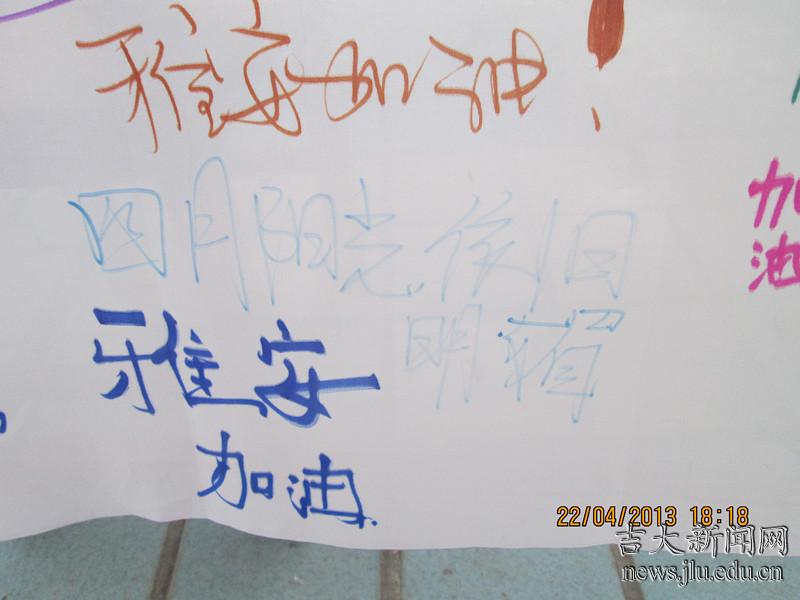 雅安加油!
四月阳光依旧
明媚
雅安
加油
加
油
22/04/2013 18:18
吉大新闻网
news.jlu.edu.cn